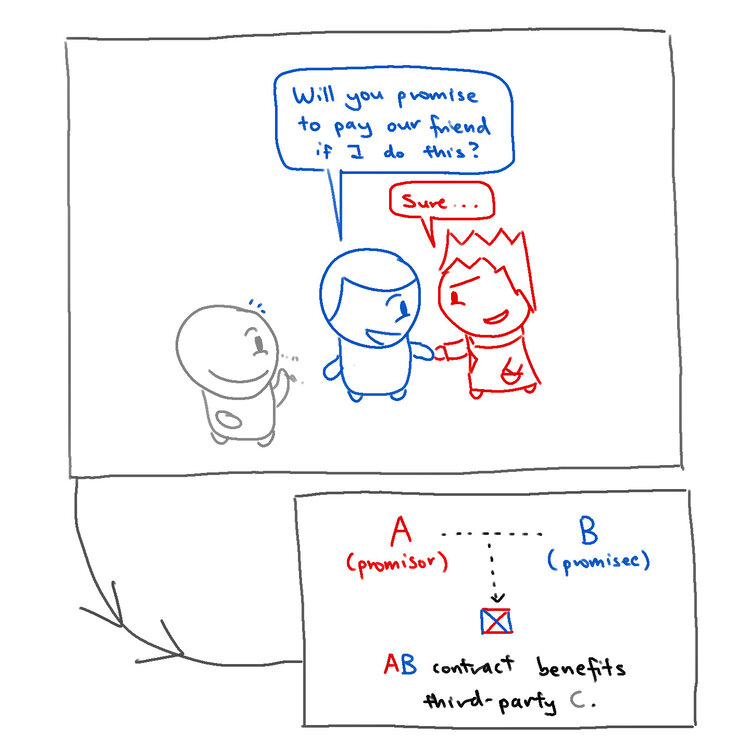 Will you promise
to pay our friend
if I do this?
Sure...
A B
(promisor) (promisee)
AB contract benefits
third-party C.